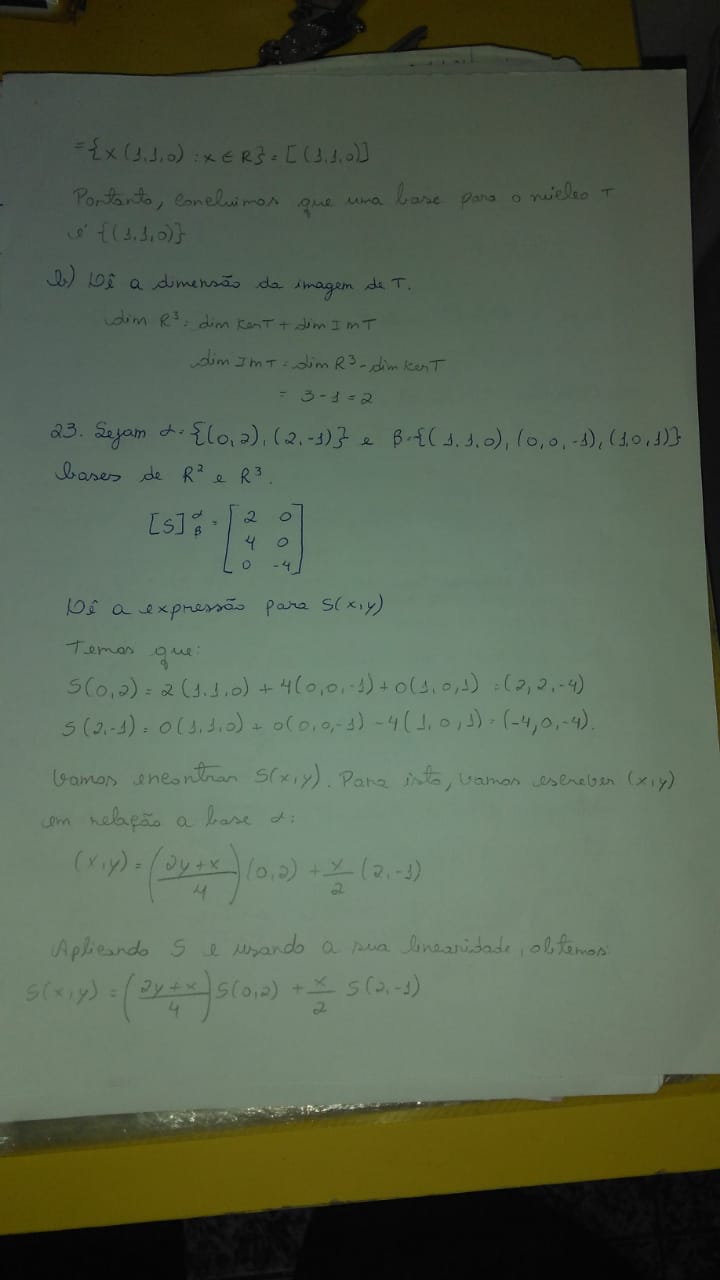 ={x(1,1,0) : x ∈ R} = [(1,1,0)]
Portanto, concluimos que uma base para o núcleo T
é {(1,1,0)}
b) Dê a dimensão da imagem de T.
dim R³ = dim KerT + dim ImT
dim ImT = dim R³ - dim KerT
= 3-1 = 2
23. Sejam α = {(0,2), (2,-1)} e β = {(1,1,0), (0,0,-1), (1,0,1)}
bases de R² e R³.
[S]^α_β = [2 0
4 0
0 -4]
Dê a expressão para S(x,y)
Temos que:
S(0,2) = 2(1,1,0) + 4(0,0,-1) + 0(1,0,1) = (2,2,-4)
S(2,-1) = 0(1,1,0) + 0(0,0,-1) - 4(1,0,1) = (-4,0,-4).
Vamos encontrar S(x,y). Para isto, vamos escrever (x,y)
em relação a base α:
(x,y) = ((2y+x)/4)(0,2) + x/2 (2,-1)
Aplicando S e usando a sua linearidade, obtemos:
S(x,y) = ((2y+x)/4) S(0,2) + x/2 S(2,-1)